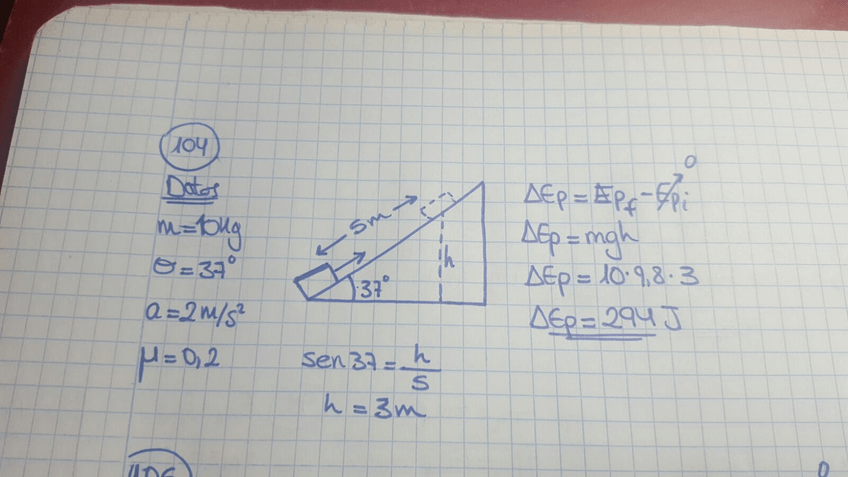 104
Datos
m=10Kg
θ=37°
a=2m/s²
μ=0,2
5m
h
37°
sen37=h/5
h=3m
ΔEp=Epf-Epi 0
ΔEp=mgh
ΔEp=10·9,8·3
ΔEp=294J